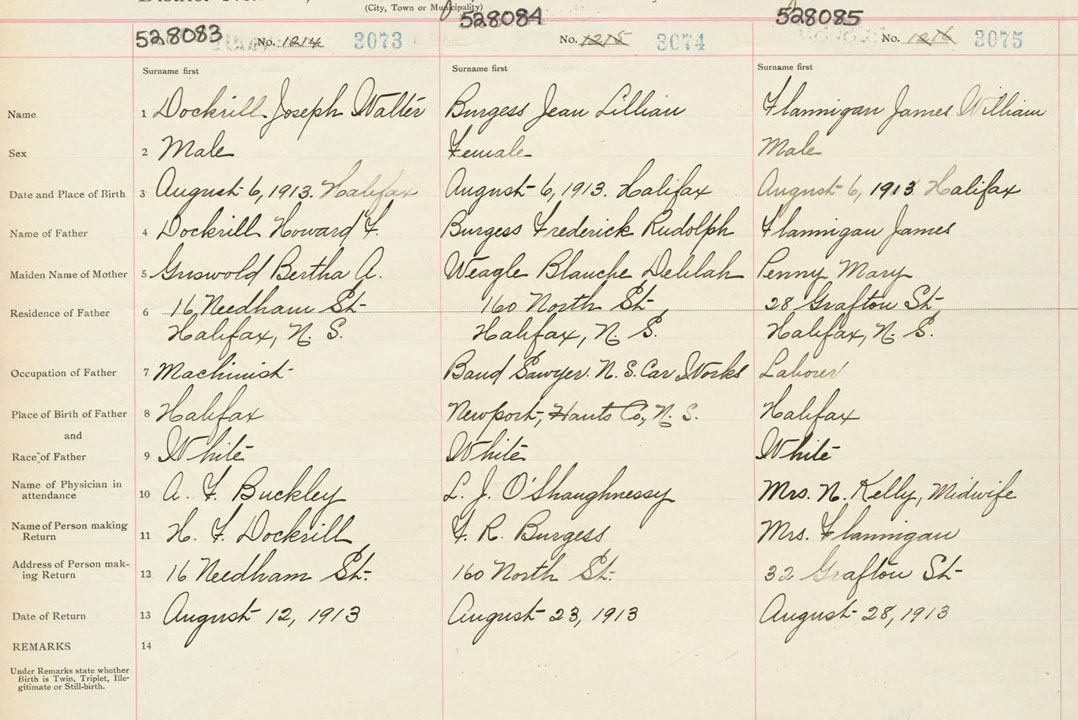 (City, Town or Municipality)
528083 528084 528085
No. 1214 3073 No. 1215 3074 No. 1216 3075
Surname first Surname first Surname first
Name 1 Dockrill Joseph Walter Burgess Jean Lillian Flannigan James William
Sex 2 Male Female Male
Date and Place of Birth 3 August 6, 1913. Halifax August 6, 1913. Halifax August 6, 1913 Halifax
Name of Father 4 Dockrill Howard F. Burgess Frederick Rudolph Flannigan James
Maiden Name of Mother 5 Griswold Bertha A. Weagle Blanche Delilah Penny Mary
Residence of Father 6 16, Needham St. 160 North St. 28 Grafton St.
Halifax, N. S. Halifax, N. S. Halifax, N. S.
Occupation of Father 7 Machinist Band Sawyer. N. S. Car Works Laborer
Place of Birth of Father 8 Halifax Newport, Hants Co, N. S. Halifax
and
Race of Father 9 White White White
Name of Physician in
attendance 10 A. F. Buckley L. J. O'Shaughnessy Mrs. N. Kelly, Midwife
Name of Person making
Return 11 H. F. Dockrill F. R. Burgess Mrs. Flannigan
Address of Person mak-
ing Return 12 16 Needham St. 160 North St. 32 Grafton St.
Date of Return 13 August 12, 1913 August 23, 1913 August 28, 1913
REMARKS 14
Under Remarks state whether
Birth is Twin, Triplet, Ille-
gitimate or Still-birth.